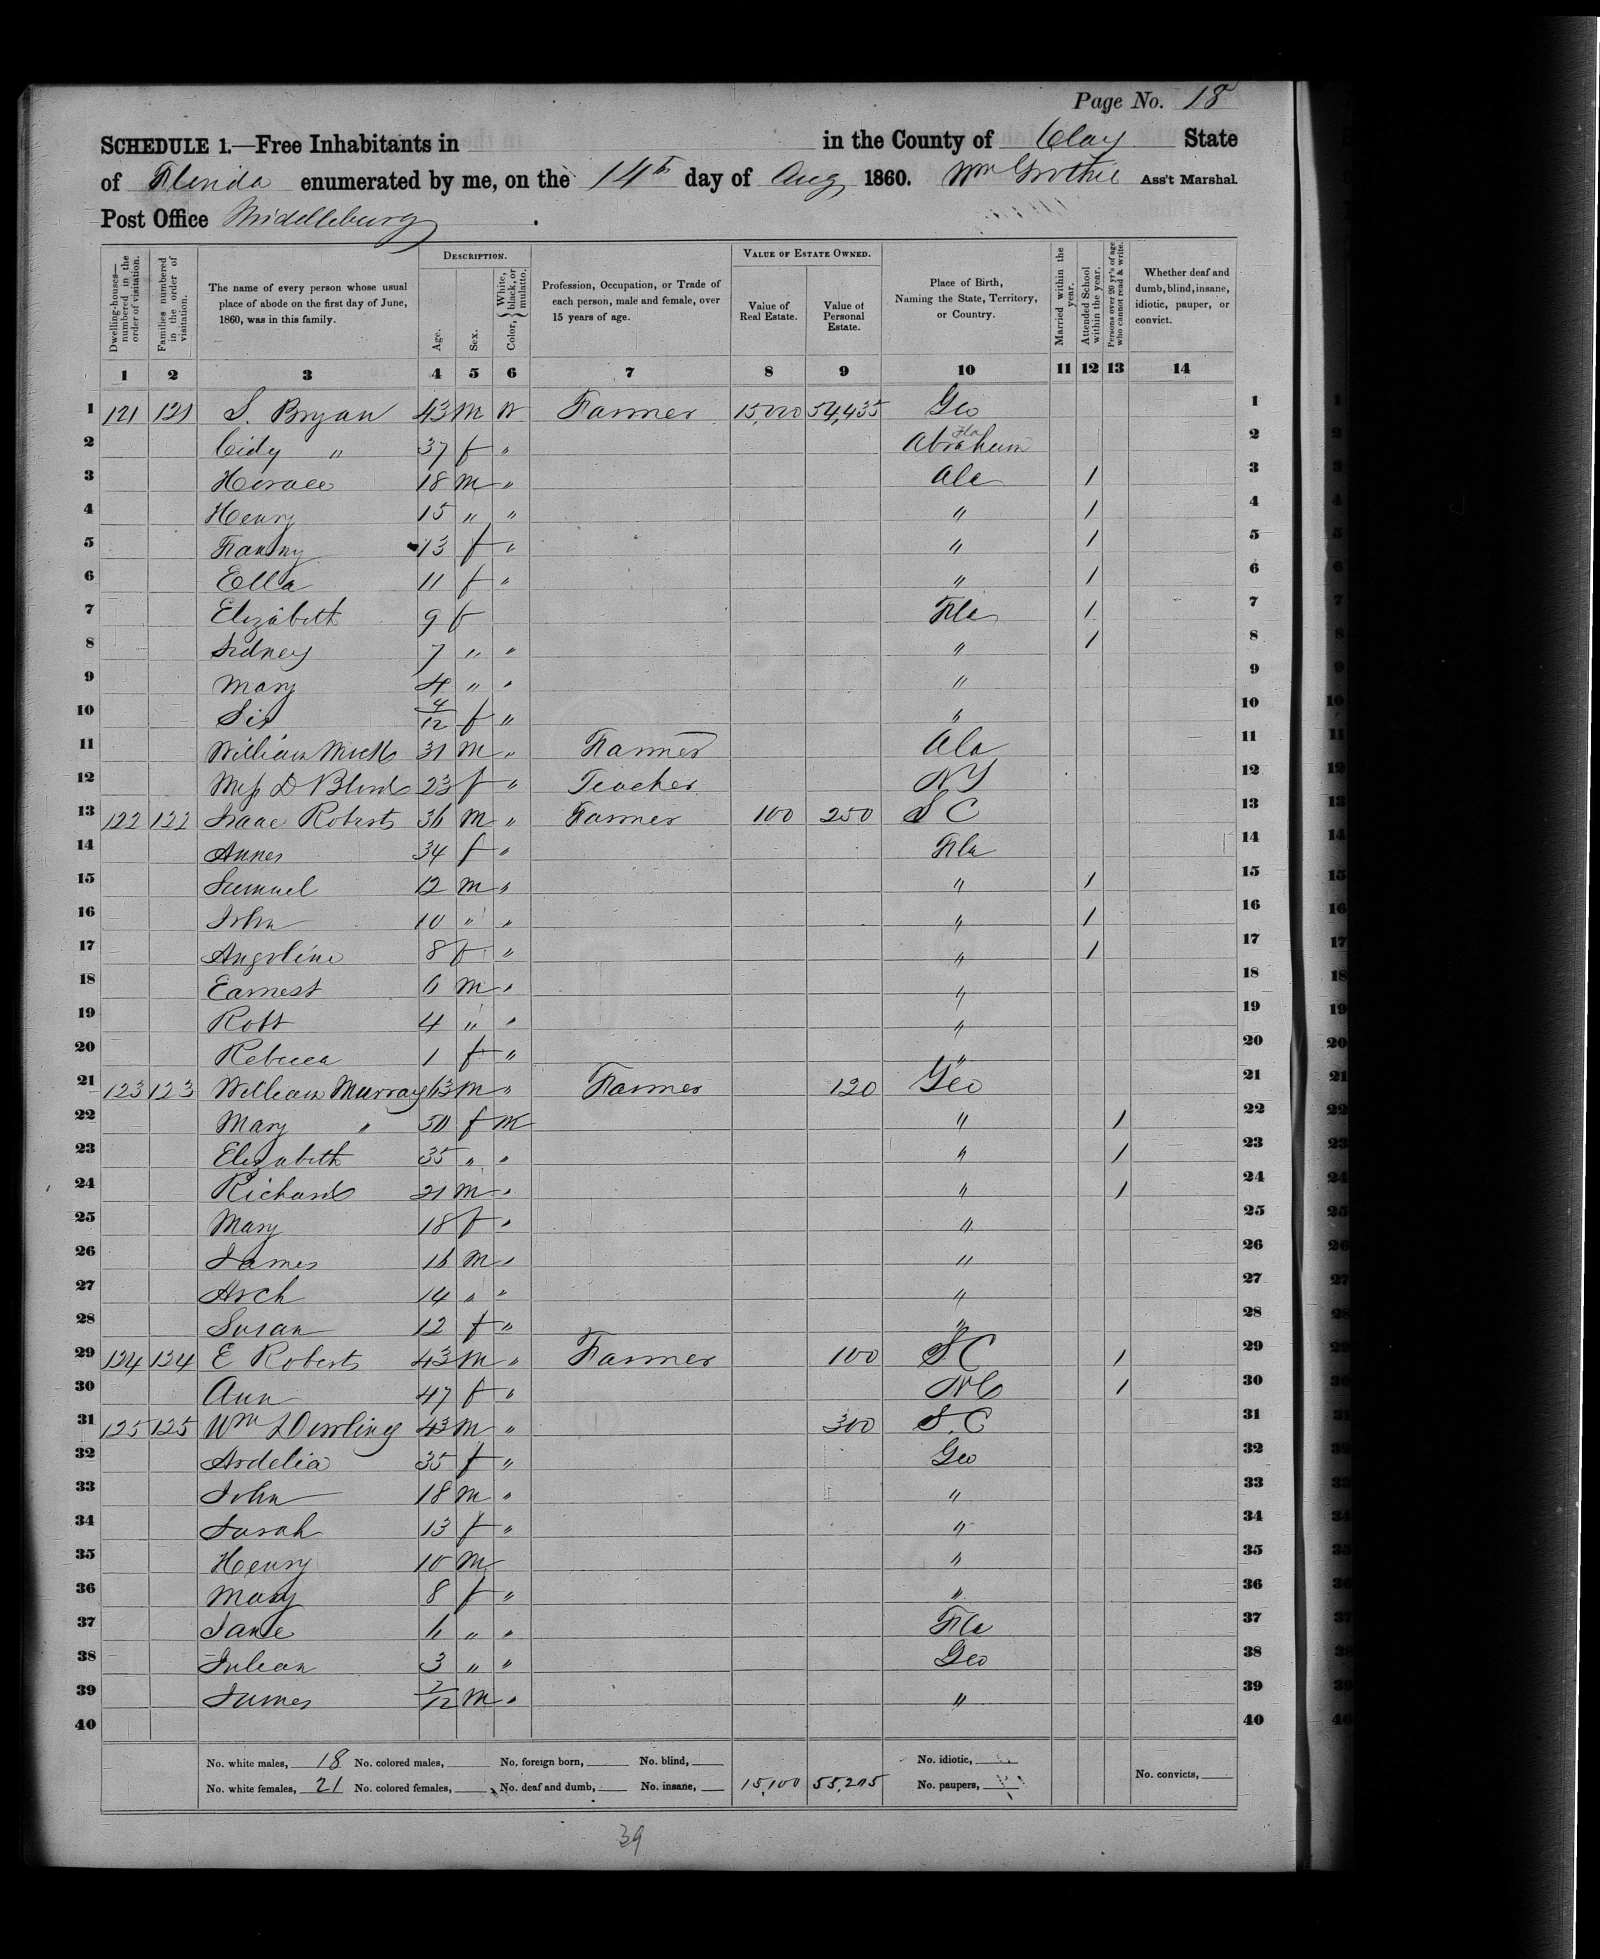 Page No. 18
SCHEDULE 1.—Free Inhabitants in in the County of Clay State
of Florida enumerated by me, on the 14th day of Aug 1860. Wm Ass't Marshal.
Post Office Middleburg
Dwelling-houses—numbered in the order of visitation. Families numbered in the order of visitation. The name of every person whose usual place of abode on the first day of June, 1860, was in this family. DESCRIPTION. Age. Sex. Color, {White, black, or mulatto. Profession, Occupation, or Trade of each person, male and female, over 15 years of age. VALUE OF ESTATE OWNED. Value of Real Estate. Value of Personal Estate. Place of Birth, Naming the State, Territory, or Country. Married within the year. Attended School within the year. Persons over 20 yr's of age who cannot read & write. Whether deaf and dumb, blind, insane, idiotic, pauper, or convict.
1 2 3 4 5 6 7 8 9 10 11 12 13 14
1 121 121 S. Bryan 43 m W Farmer 15,000 54,435 Geo 1
2 Cidy " 37 f " Abraham Fla 2
3 Horace 18 m " Ala 1 3
4 Henry 15 " " " 1 4
5 Fanny 13 f " " 1 5
6 Ella 11 f " " 1 6
7 Elizabeth 9 f Fla 1 7
8 Sidney 7 " " " 1 8
9 Mary 4 " " " 9
10 Sis 4/12 f " " 10
11 William 31 m " Farmer Ala 11
12 Miss D 23 f " Teacher NY 12
13 122 122 Isaac Roberts 36 m " Farmer 100 250 S C 13
14 Annes 34 f " Fla 14
15 Samuel 12 m " " 1 15
16 John 10 " " " 1 16
17 Angeline 8 f " " 1 17
18 Earnest 6 m " " 18
19 Robt 4 " " " 19
20 Rebecca 1 f " " 20
21 123 123 William Murray 63 m " Farmer 120 Geo 21
22 Mary " 50 f M " 1 22
23 Elizabeth 35 " " " 1 23
24 Richard 21 m " " 1 24
25 Mary 18 f " " 25
26 James 16 m " " 26
27 Arch 14 " " " 27
28 Susan 12 f " " 28
29 124 124 E Roberts 43 m " Farmer 100 S C 1 29
30 Ann 47 f " N C 1 30
31 125 125 Wm L Dowling 43 m " 300 S. C 31
32 Ardelia 35 f " Geo 32
33 John 18 m " " 33
34 Sarah 13 f " " 34
35 Henry 10 m " 35
36 Mary 8 f " " 36
37 Jane 6 " " Fla 37
38 Julean 3 " " Geo 38
39 James 2/12 m " " 39
40 40
No. white males, 18 No. colored males, No. foreign born, No. blind, No. idiotic,
No. white females, 21 No. colored females, No. deaf and dumb, No. insane, 15,100 55,205 No. paupers, No. convicts,
39